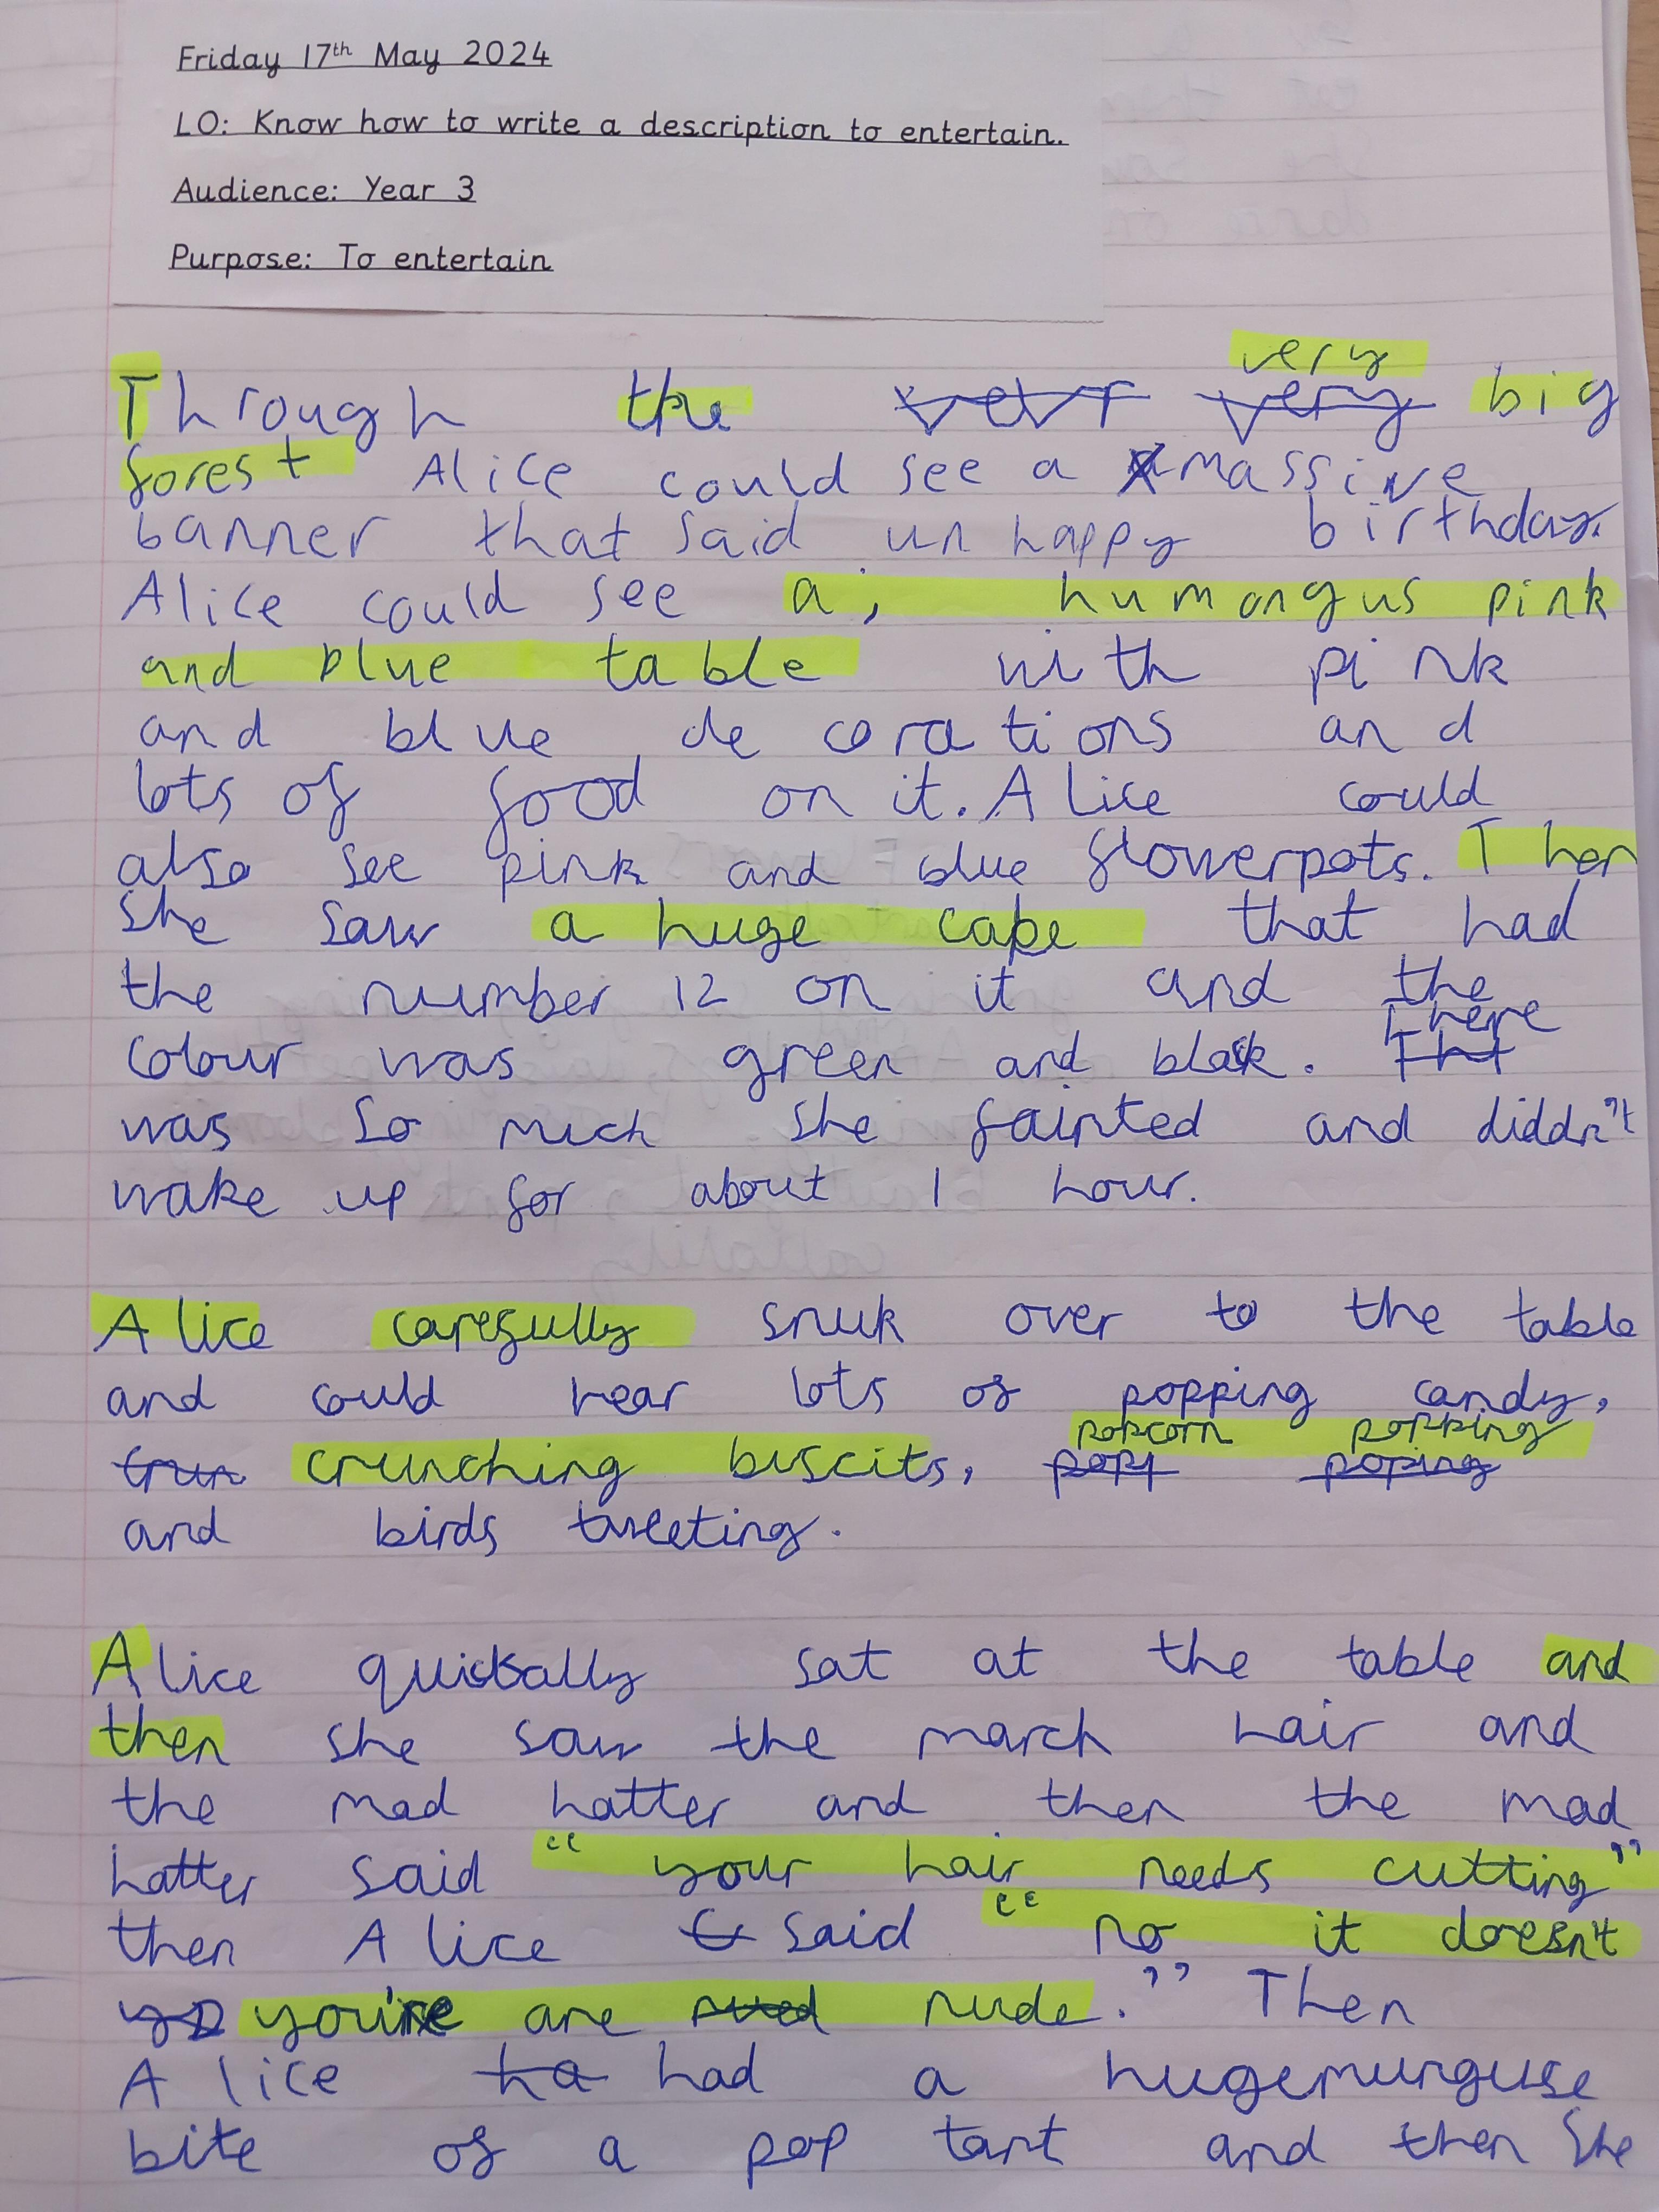 Friday 17th May 2024
LO: Know how to write a description to entertain.
Audience: Year 3
Purpose: To entertain
Through the very big
forest Alice could see a massive
banner that said un happy birthday.
Alice could see a, humongus pink
and blue table with pink
and blue decorations and
lots of food on it. Alice could
also see pink and blue flowerpots. Then
she saw a huge cake that had
the number 12 on it and the
colour was green and black. There
was so much she fainted and diddn't
wake up for about 1 hour.
Alice carefully snuk over to the table
and could hear lots of popping candy,
crunching biscits, popcorn popping
and birds tweeting.
Alice quickally sat at the table and
then she saw the march hair and
the mad hatter and then the mad
hatter said "your hair needs cutting"
then Alice said "no it doesn't
you're are rude." Then
Alice had a hugemunguse
bite of a pop tart and then she